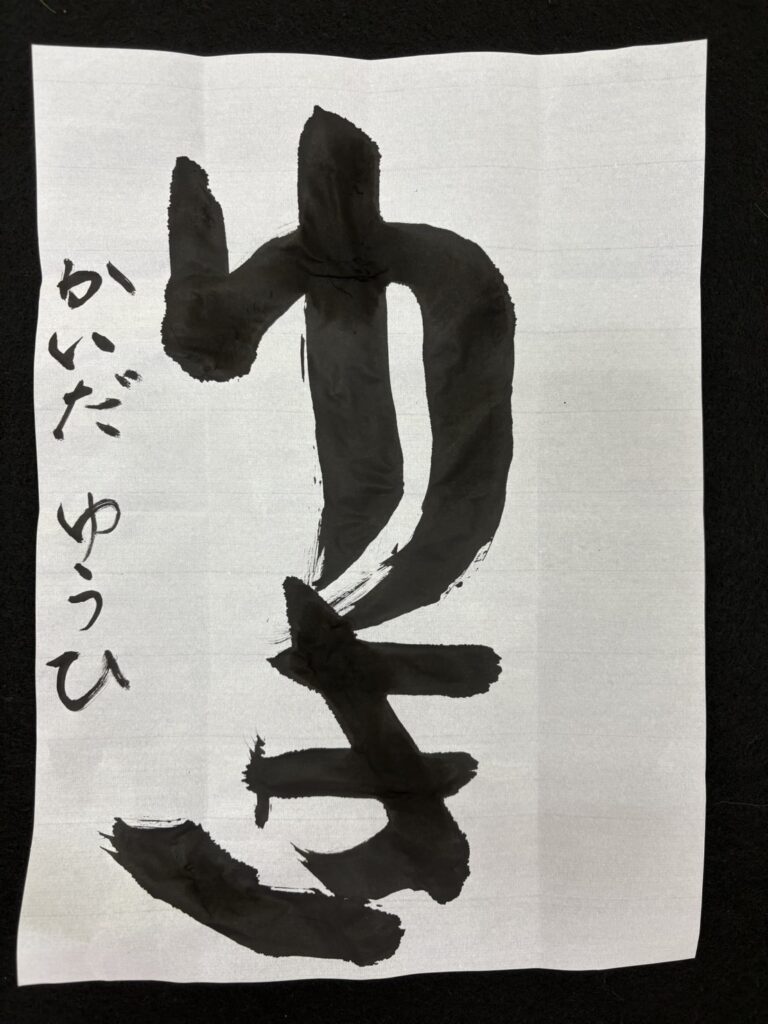 ゆき
かいだ ゆうひ